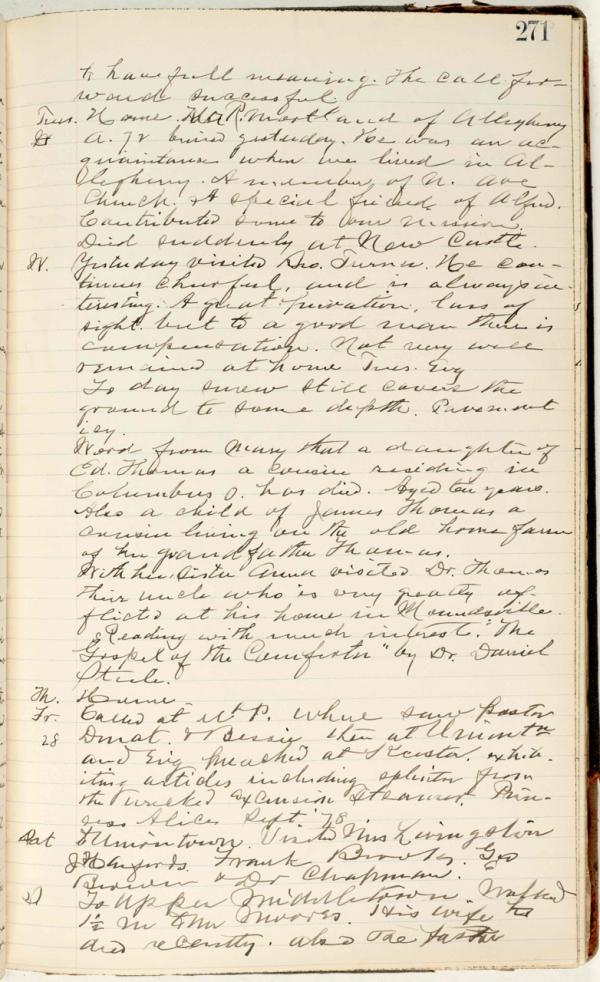 271
to have full meaning. The call for-
ward successful
Tues. Home. R. Mortland of Allegheny
A. 72 buried yesterday. He was an ac-
quaintance when we lived in Al-
legheny. A member of N. Ave
Church. A special friend of Alfred.
Contributed some to our mission.
Died suddenly at New Castle.
W. Yesterday visited Bro. Turner. He con-
tinues cheerful, and is always in-
teresting. A great privation, loss of
sight. but to a good man there is
compensation. Not very well
remained at home Tues. Evg
To day snow still covers the
ground to some depth. Pavement
icy.
Word from Mary that a daughter of
Ed. Thomas a cousin residing in
Columbus O. has died. Aged ten years.
Also a child of James Thomas a
cousin living on the old home farm
of her grandfather Thomas.
With her sister Anna visited Dr. Thomas
their uncle who is very greatly af-
flicted at his home in Moundsville.
Reading with much interest. "The
Gospel of the Comforter" by Dr. Daniel
Steele.
Th. Home
Fr. Called at Mt P. where saw Pastor
28 Donat. & Bessie then at Uniontn
and Evg preached at exhib-
iting articles including splinter from
the wrecked excursion Steamer Prin-
cess Alice Sept. 78
Sat to Uniontown. Visited Mrs Livingston
J Frank Brooks. Geo
Brown & Dr Chapman.
S To Upper Middletown. Walked
1½ m to Mr Moores. His wife
died recently. also the